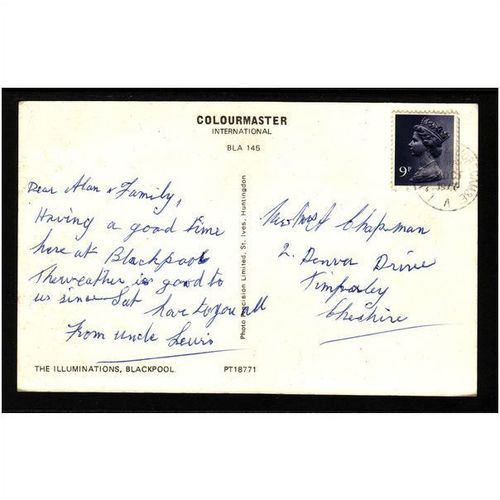 COLOURMASTER
INTERNATIONAL
BLA 145
9P
Dear Alan & Family,
Having a good time
here at Blackpool
The weather is good to
us since Sat
have to you all
From uncle Lewis
Photo Precision Limited, St. Ives, Huntingdon
Chapman
2. Denver Drive
Timperley
Cheshire
THE ILLUMINATIONS, BLACKPOOL.
PT18771